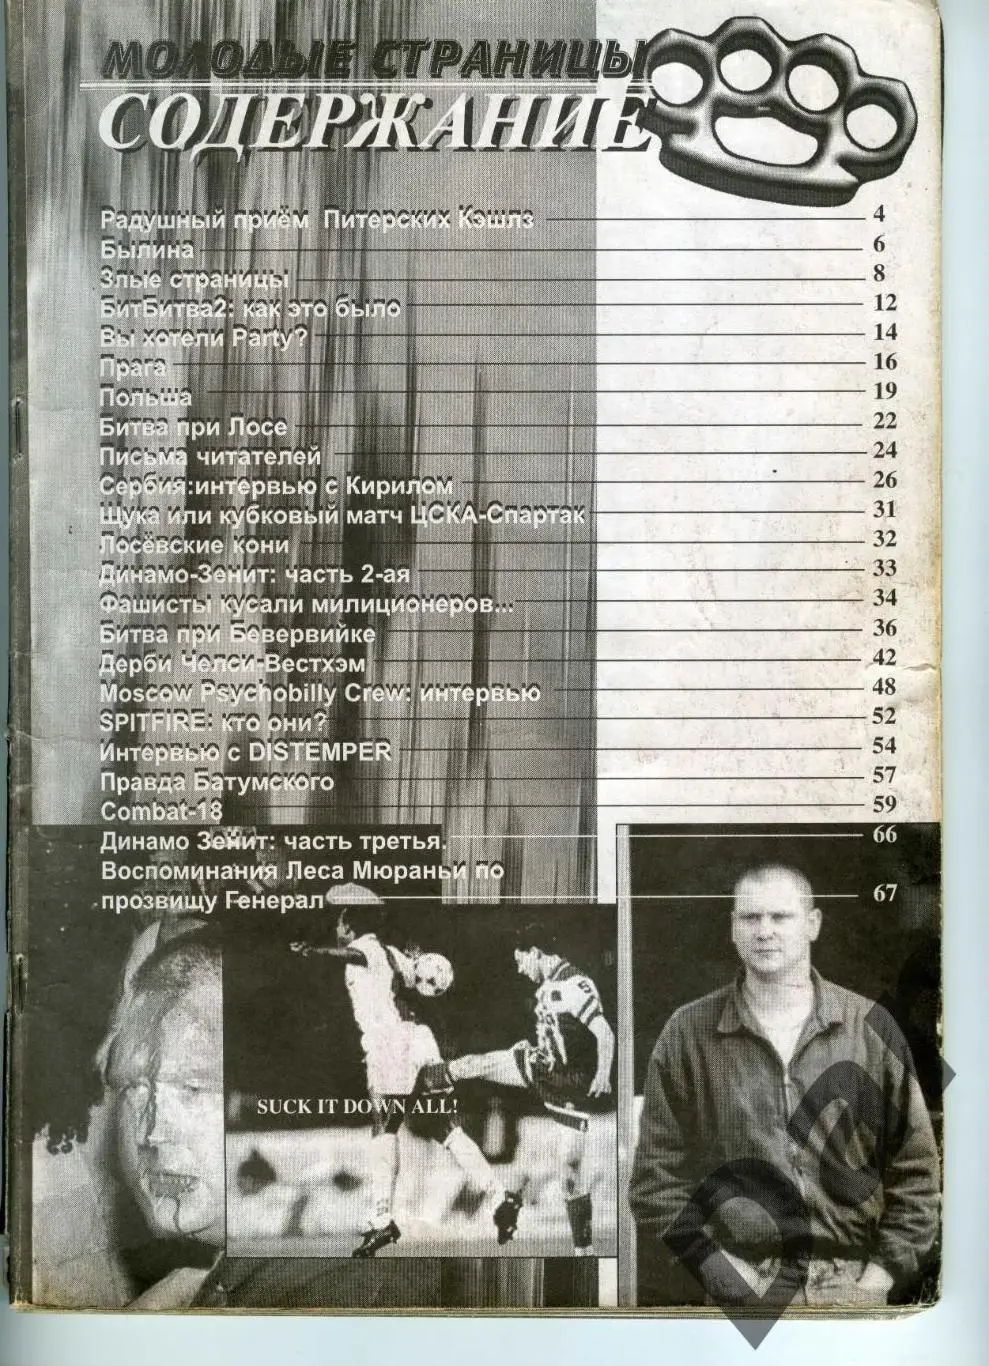 МОЛОДЫЕ СТРАНИЦЫ
СОДЕРЖАНИЕ
Радушный приём Питерских Кэшлз 4
Былина 6
Злые страницы 8
БитБитва2: как это было 12
Вы хотели Party? 14
Прага 16
Польша 19
Битва при Лосе 22
Письма читателей 24
Сербия:интервью с Кирилом 26
Щука или кубковый матч ЦСКА-Спартак 31
Лосёвские кони 32
Динамо-Зенит: часть 2-ая 33
Фашисты кусали милиционеров... 34
Битва при Бевервийке 36
Дерби Челси-Вестхэм 42
Moscow Psychobilly Crew: интервью 48
SPITFIRE: кто они? 52
Интервью с DISTEMPER 54
Правда Батумского 57
Combat-18 59
Динамо Зенит: часть третья. 66
Воспоминания Леса Мюраньи по
прозвищу Генерал 67
SUCK IT DOWN ALL!